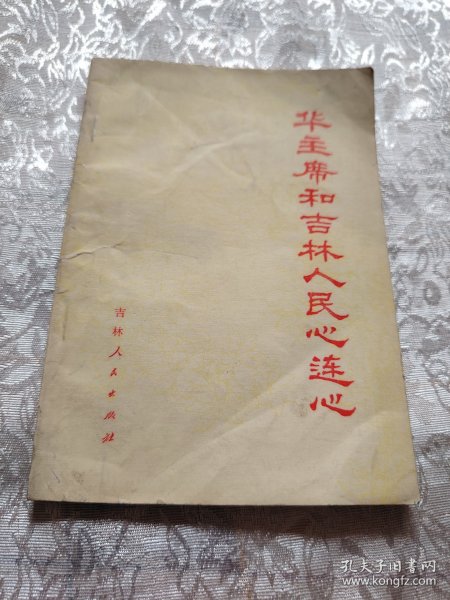 华主席和吉林人民心连心
吉林人民出版社
孔夫子旧书网
www.kongfz.com